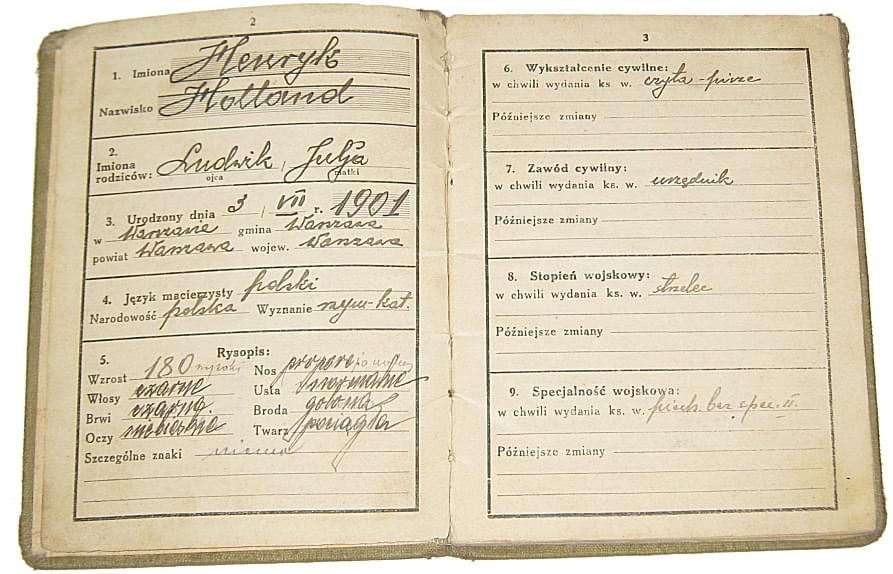 2
1. Imiona Henryk
Nazwisko Holland
2.
Imiona
rodziców: Ludwik, Julja
ojca matki
3. Urodzony dnia 3 / VII r. 1901
w Warszawie gmina Warszawa
powiat Warszawa wojew. Warszawa
4. Język macierzysty polski
Narodowość polska Wyznanie rzym-kat.
5. Rysopis:
Wzrost 180 wysoki Nos propore
Włosy czarne Usta normalne
Brwi czarne. Broda golona
Oczy niebieskie Twarz pociągła
Szczególne znaki niema
3
6. Wykształcenie cywilne:
w chwili wydania ks. w. czyta-pisze
Późniejsze zmiany
7. Zawód cywilny:
w chwili wydania ks. w. urzędnik
Późniejsze zmiany
8. Stopień wojskowy:
w chwili wydania ks. w. strzelec
Późniejsze zmiany
9. Specjalność wojskowa:
w chwili wydania ks. w. piech. bez spec. II.
Późniejsze zmiany